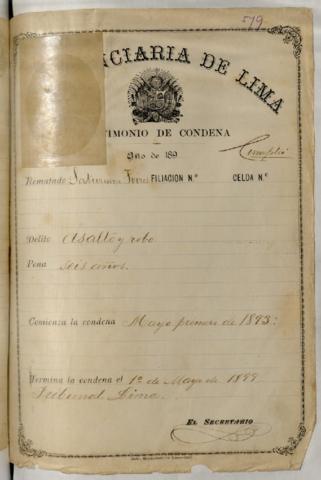 579
NCIARIA DE LIMA
TIMONIO DE CONDENA
Año de 189
Cumplió
Rematado Saturnino Torres FILIACION N.º CELDA N.º
Delito Asalto y robo
Pena seis años.
Comienza la condena Mayo primero de 1893:
Termina la condena el 1º de Mayo de 1899
Tribunal Lima.
EL SECRETARIO